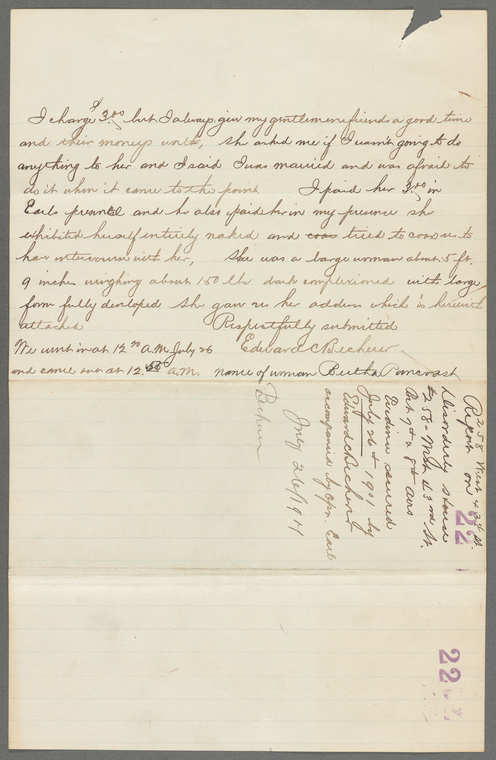 I charge $3.00 but I always give my gentlemen friends a good time
and their moneys worth, she asked me if I wasn't going to do
anything to her and I said I was married and was afraid to
do it when it came to the point I paid her 3.00 in
Earls presence and he also paid her in my presence she
exhibited herself entirely naked and tried to coax us to
have intercourse with her, She was a large woman about 5 ft.
9 inches weighing about 150 lbs dark complexioned with large
form fully developed she gave us her address which is herewith
attached Respectfully submitted
We went in at 12 A.M. July 26 Edward C Becherer
and came out at 12. A.M. name of woman Bertha Pancoast
258 West 43rd St.
Report on
Disorderly House
#258 - West 43rd St.
Bet 7th & 8th Avs
Evidence secured
July 26th 1901 by
Edward Becherer
accompanied by Opr. Earl
July 26/1901
Becherer
22
22